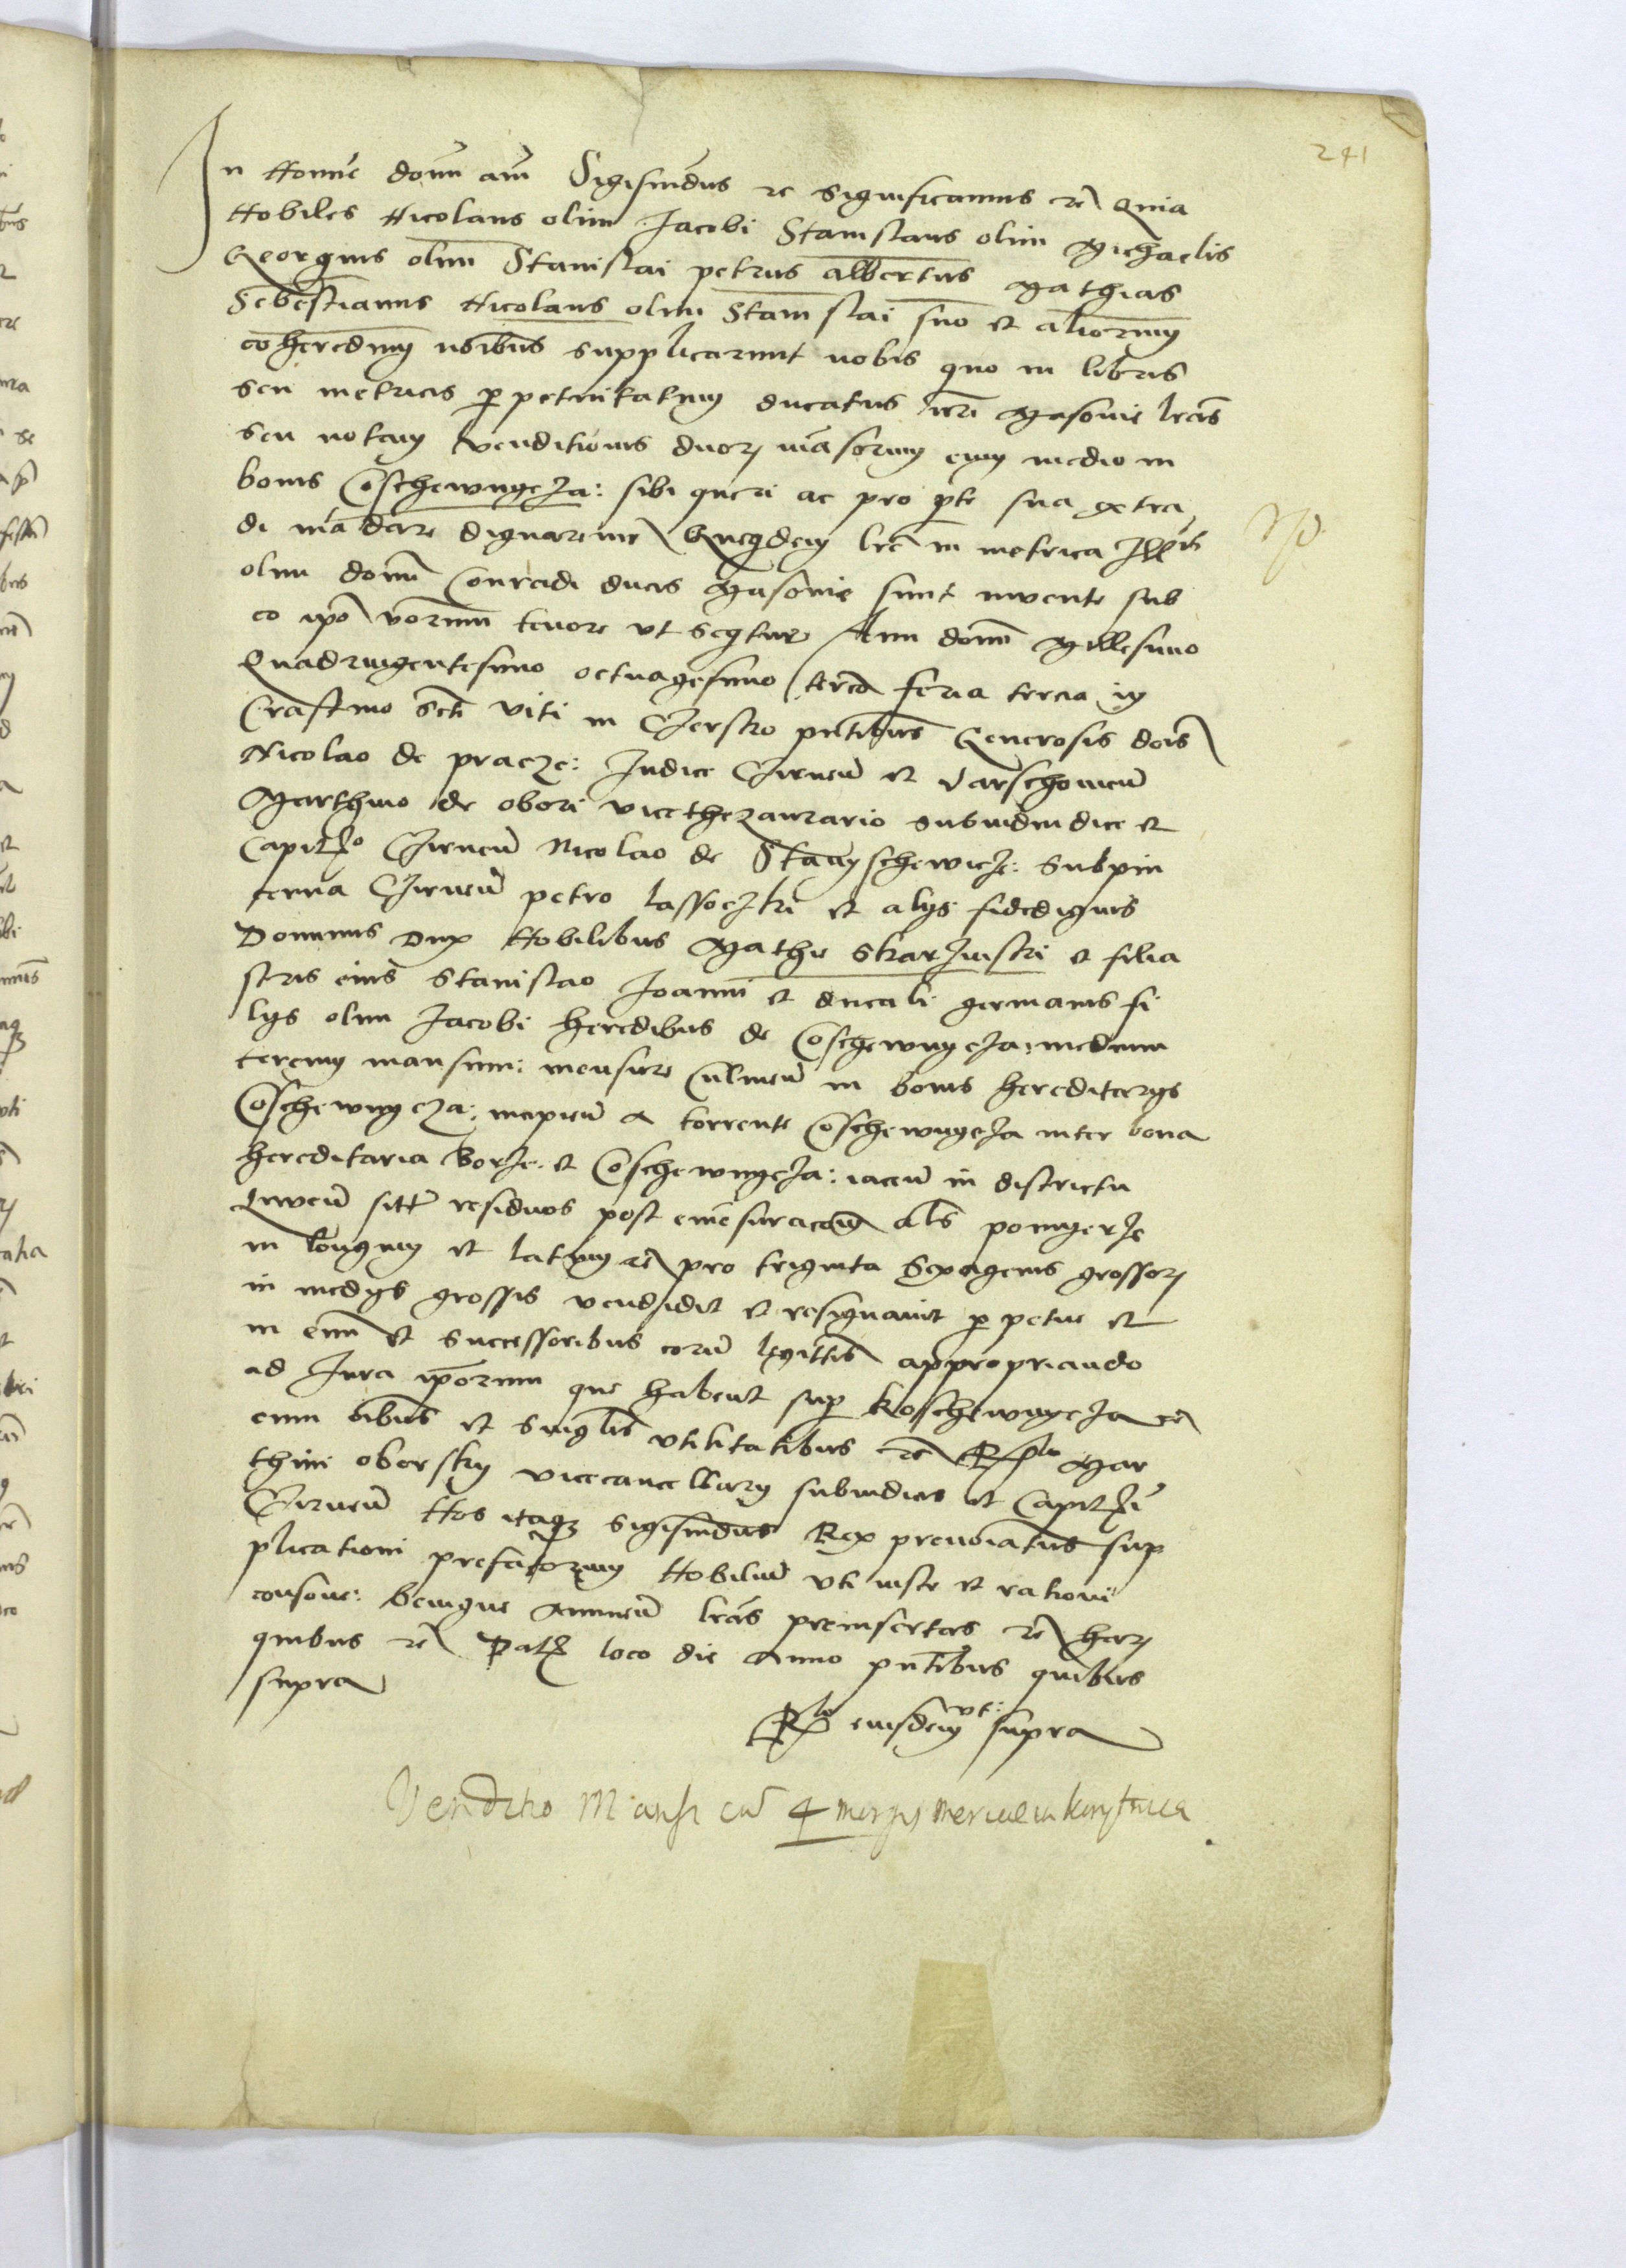 241
In Nomie domi am Sigismdus re significamus re Quia
Nobiles Nicolaus olim Jacobi Stanislaus olim Michaelis
Georgius olim Stanislai petrus albertus Mathias
Sebestianus Nicolaus olim Stanislai suo et aliorum
coheredum noibus supplicarunt nobis quo in libris
seu metricis perpetuitatum ducatus nri Masovie lras
seu notam venditionis duorum mansorum cum medio in
bonis Coschewnycza: sibi queri ac pro parte sua extra
di mandare dignaremur Quequidem lre in metrica Illris
olim domi Conradi ducis Masovie sunt invente sub
eo ipo vorum tenore ut sequitur Anno domi Millesimo
Quadringentesimo octuagesimo tercio feria tercia in
Crastino Scti Viti in Czersko pntibus Generosis dois
Nicolao de pracze: Judice Cirnen et Varschovien
Marthino de obori vicethezaurario subiudice et
Capitneo Cirnen Nicolao de Stanyschewicze: Subpin
cerna Cirnen petro lassoczki et alys fidedignis
Dominus Dux Nobilibus Mathie Skarzinski et filia
stris eius Stanislao Joanni et ducali germanis fi
lys olim Jacobi heredibus de Coschewnycza: medium
tercium mansum: mensure Culmen in bonis hereditarys
Coschewnycza: incipien a torrente Coschewnycza inter bona
hereditaria borze: et Coschewnycza: iacen in districtu
sitos residuos post emesuracom als pomyerze
in longum et latum re pro triginta Sexagenis grossorum
in medys grossis vendidit et resignavit perpetue et
in evum et successoribus eorum legittis appropriando
ad Jura iporum que habent super Koschewnycza re
cum oibus et singlis utilitatibus re Rlo Mar
thini oborsky vicecancellary subiudicis et Capitnei
Cirnen Nos itaque Sigismdus Rex prenoiatus sup
plicationi prefatorum Nobilium uti iuste et rationi
consone: benigne annuen lras preinsertas re harum
quibus re Datum loco die Anno pntibus quibus
supra
Rlo eiusdem ut: supra
Venditio Mansi cu 4 morgis